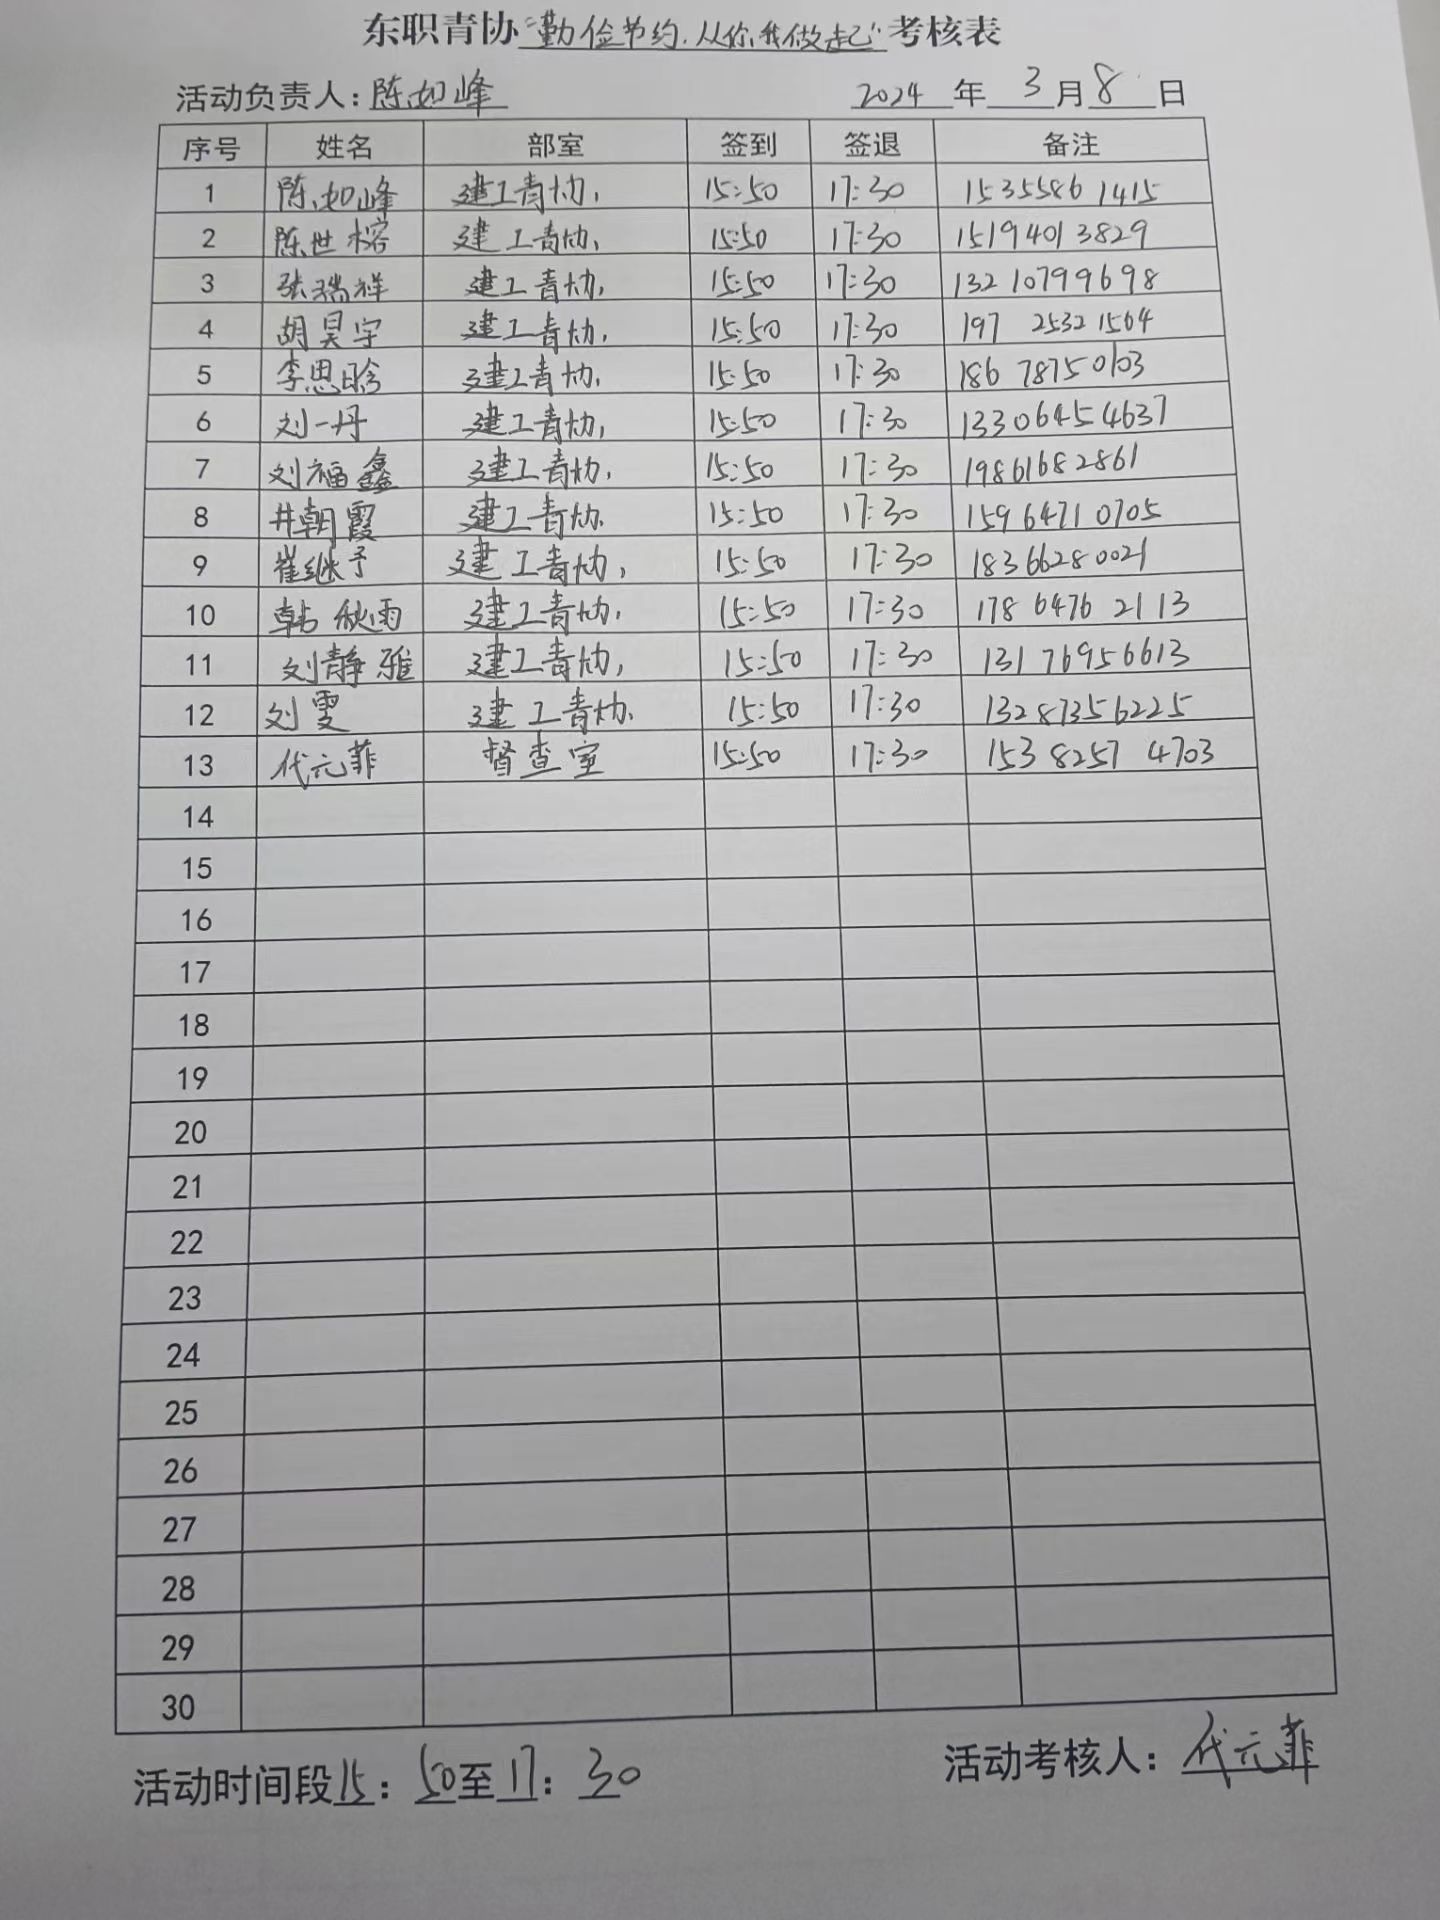 东职青协“勤俭节约.从你我做起”考核表
活动负责人：陈如峰 2024年3月8日
序号 姓名 部室 签到 签退 备注
1 陈如峰 建工青协 15:50 17:30 15355861415
2 陈世榕 建工青协 15:50 17:30 15194013829
3 张瑞祥 建工青协 15:50 17:30 13210799698
4 胡昊宇 建工青协 15:50 17:30 197 2532 1564
5 李思晗 建工青协 15:50 17:30 186 7875 0103
6 刘一丹 建工青协 15:50 17:30 13306454637
7 刘福鑫 建工青协 15:50 17:30 19861682861
8 井朝霞 建工青协 15:50 17:30 15964710705
9 崔继予 建工青协 15:50 17:30 18366280021
10 韩秋雨 建工青协 15:50 17:30 178 6476 2113
11 刘静雅 建工青协 15:50 17:30 13176956613
12 刘雯 建工青协 15:50 17:30 13287356225
13 代元菲 督查室 15:50 17:30 153 8257 4703
14
15
16
17
18
19
20
21
22
23
24
25
26
27
28
29
30
活动时间段15：50至17：30 活动考核人：代元菲